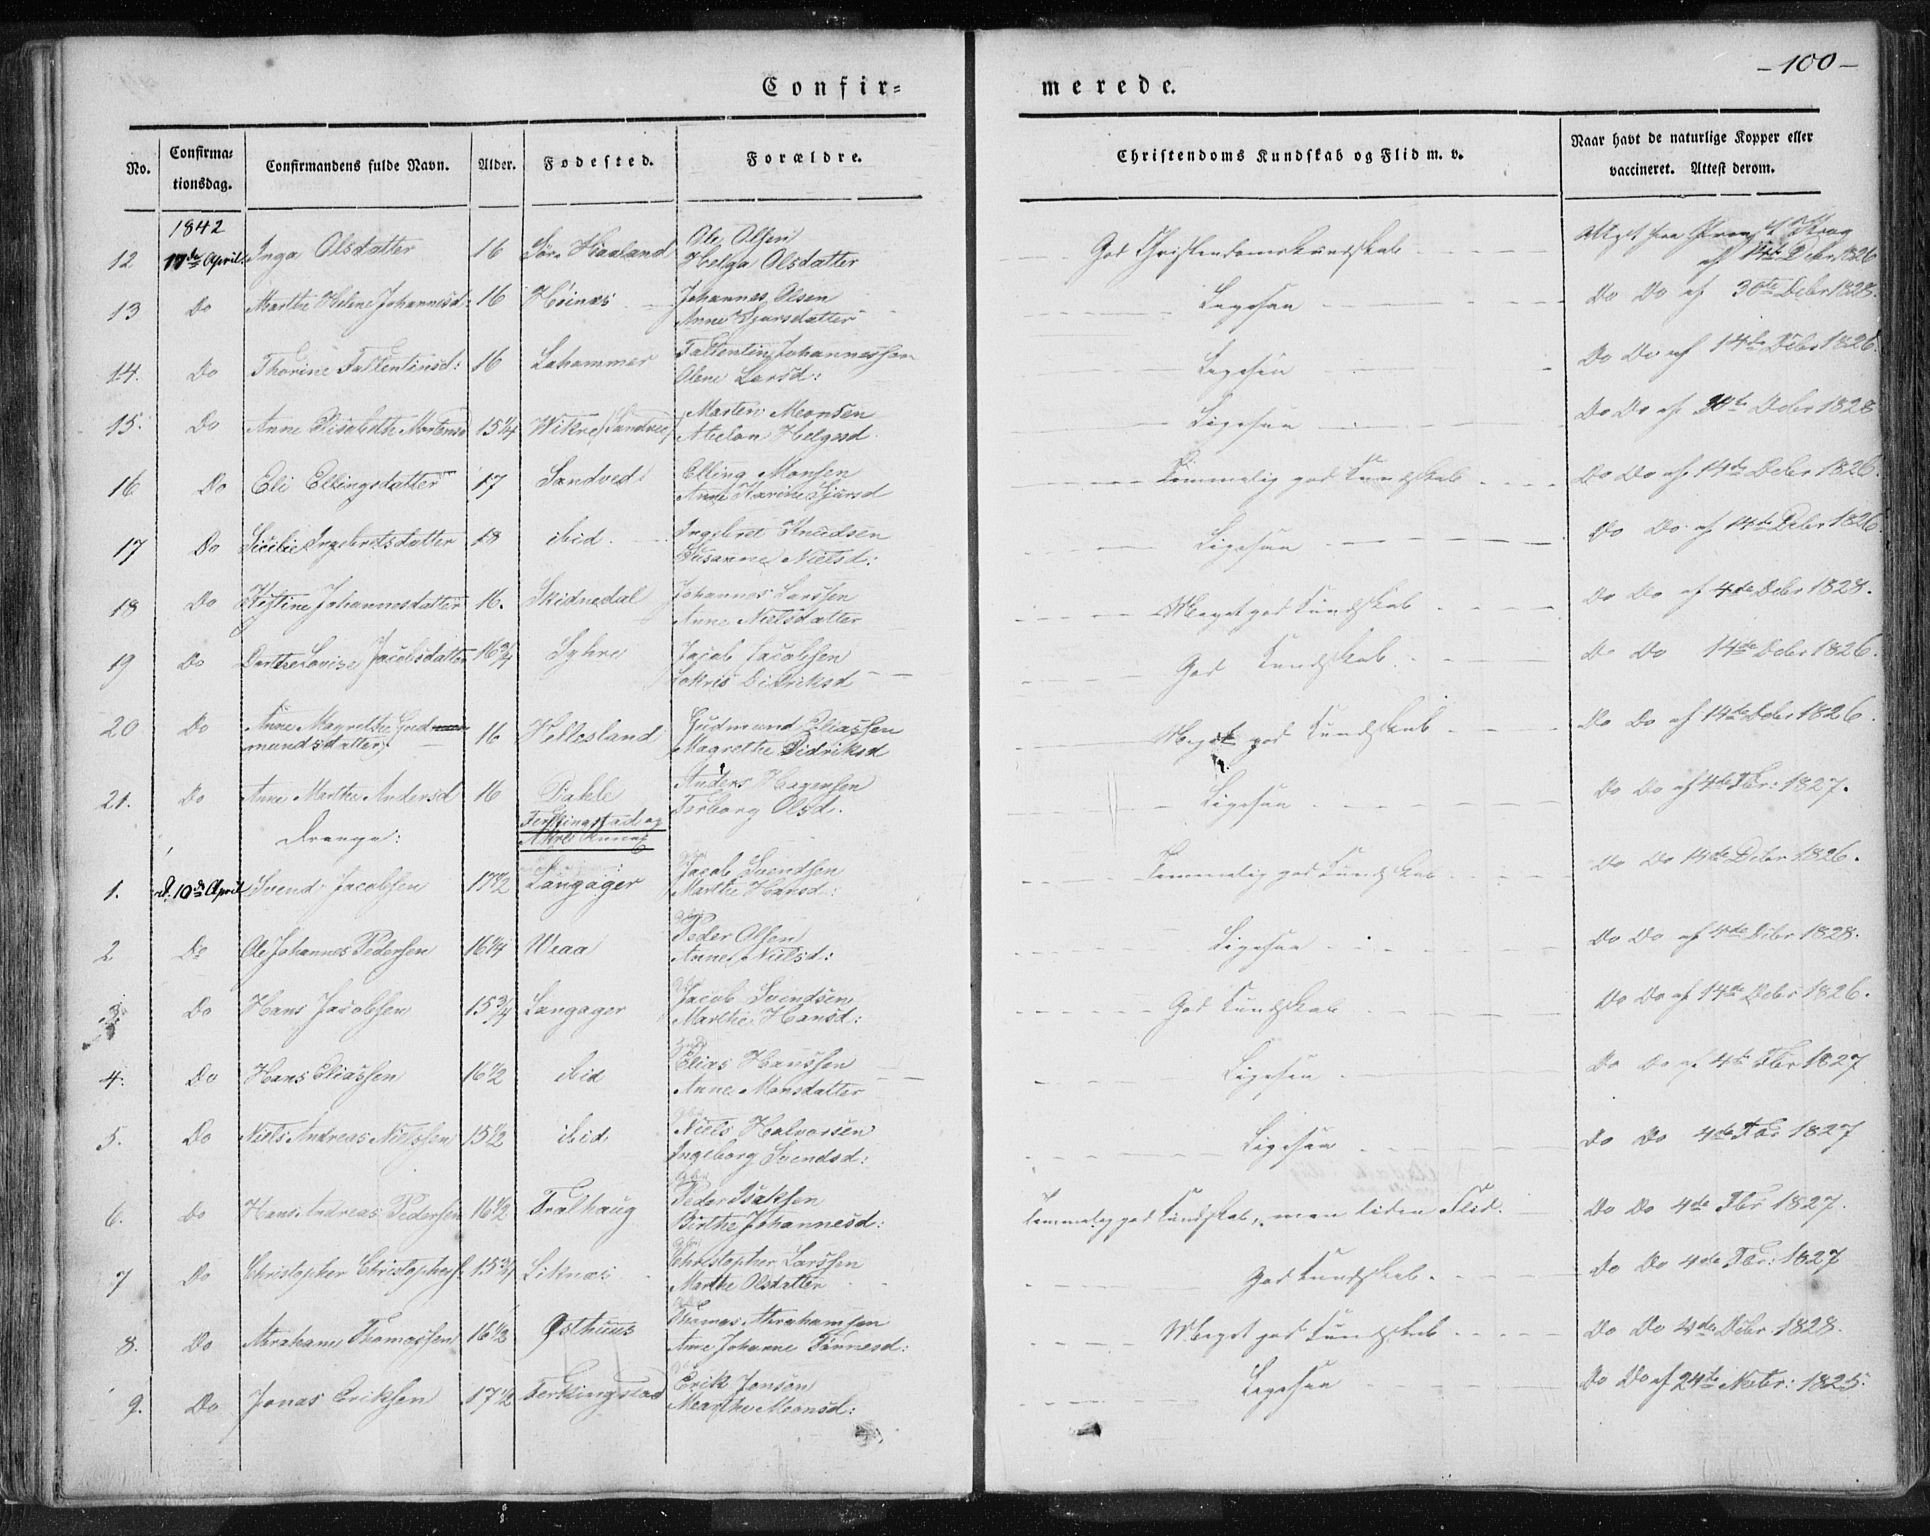 -100-
Confir= merede.
No. Confirma=tionsdag. Confirmandens fulde Navn. Alder. Fødested. Forældre. Christendoms Kundskab og Flid m. v. Naar havt de naturlige Kopper eller vaccineret. Attest derom.
1842
12 17de April. Inga Olsdatter 16 Søre Haaland Ole Olsen God Christendomskundskab Attest fra Provst
Helga Olsdatter af 14de Debr 1826
13 Do Marthe Helene Johannesd: 16 Høinæs Johannes Olsen Ligesaa Do Do af 30te Debr 1828.
Anne Sjursdatter
14. Do Thorine Faltentinsd: 16 Lahammer Faltentin Johannessen Ligesaa Do Do af 14de Debr 1826.
Olene Larsd:
15. Do Anne Elisabethe Mortensd 15¼ Wikre (Sandvee) Morten Monsen Ligesaa Do Do af 30te Debr 1828
Helgesd.
16 Do Eli Ellingsdatter 17 Sandved Elling Monsen Temmelig god Kundskab Do Do af 14de Debr 1826.
Anne Karine Sjursd
17 Do Sicilie Ingebretsdatter 18 ibid. Ingebret Knudsen Ligesaa Do Do af 14de Debr 1826.
Susanne Nielsd:
18 Do Kistine Johannesdatter 16. Skidnedal Johannes Larssen Meget god Kundskab Do Do af 4de Debr 1828.
Anne Nielsdatter
19 Do Dorthe Lovise Jacobsdatter 16¾ Syhre Jacob Jacobsen God Kundskab. Do Do 14de Debr 1826.
Didriksd
20 Do Anne Magrethe Gud- 16 Hellesland Gudmund Eliassen Meget god Kundskab Do Do af 14de Debr 1826.
mundsdatter Magrethe Didriksd
21. Do Anne Marthe Andersd 16 Dahle Anders Hagensen Ligesaa Do Do af 4de Fbr: 1827.
Torborg Olsd.
Drenge: Ferkingstad og
1. d. 10de April Svend Jacobsen 17½ Langager Jacob Svendsen Temmelig god Kundskab Do Do 14de Debr 1826.
Marthe Hansd:
2 Do Ole Johannes Pedersen 16¼ Wraa Peder Olsen Ligesaa Do Do af 4de Debr 1828.
Anne Nielsd:
3. Do Hans Jacobsen 15¾ Langager Jacob Svendsen God Kundskab Do Do af 14de Debr 1826.
Marthe Hansd:
4. Do Hans Eliassen 16½ ibid Elias Hanssen Ligesaa Do Do af 4de Fbr 1827
Anne Monsdatter
5. Do Niels Andreas Nielssen 15½ ibid Niels Halvorsen Ligesaa Do Do 4de Fbr 1827
Ingeborg Svendsd:
6. Do Hans Andreas Pedersen 16½ Tralhaug Peder Isaksen Temmelig god Kundskab, men liden Flid. Do Do 4de Fbr 1827.
Birthe Johannesd:
7 Do Christopher Christophers. 15¾ Liknæs Christopher Larssen God Kundskab. Do Do 4de Fbr: 1827
Marthe Olsdatter
8. Do Abraham Thomassen 16½ Østhuus Thomas Abrahamsen Meget god Kundskab Do Do 4de Debr 1828.
Anne Johanne Tønnesd:
9. Do Jonas Eriksen 17½ Ferkingstad Erik Jonsen Ligesaa Do Do af 24de 1825.
Marthe Monsd: